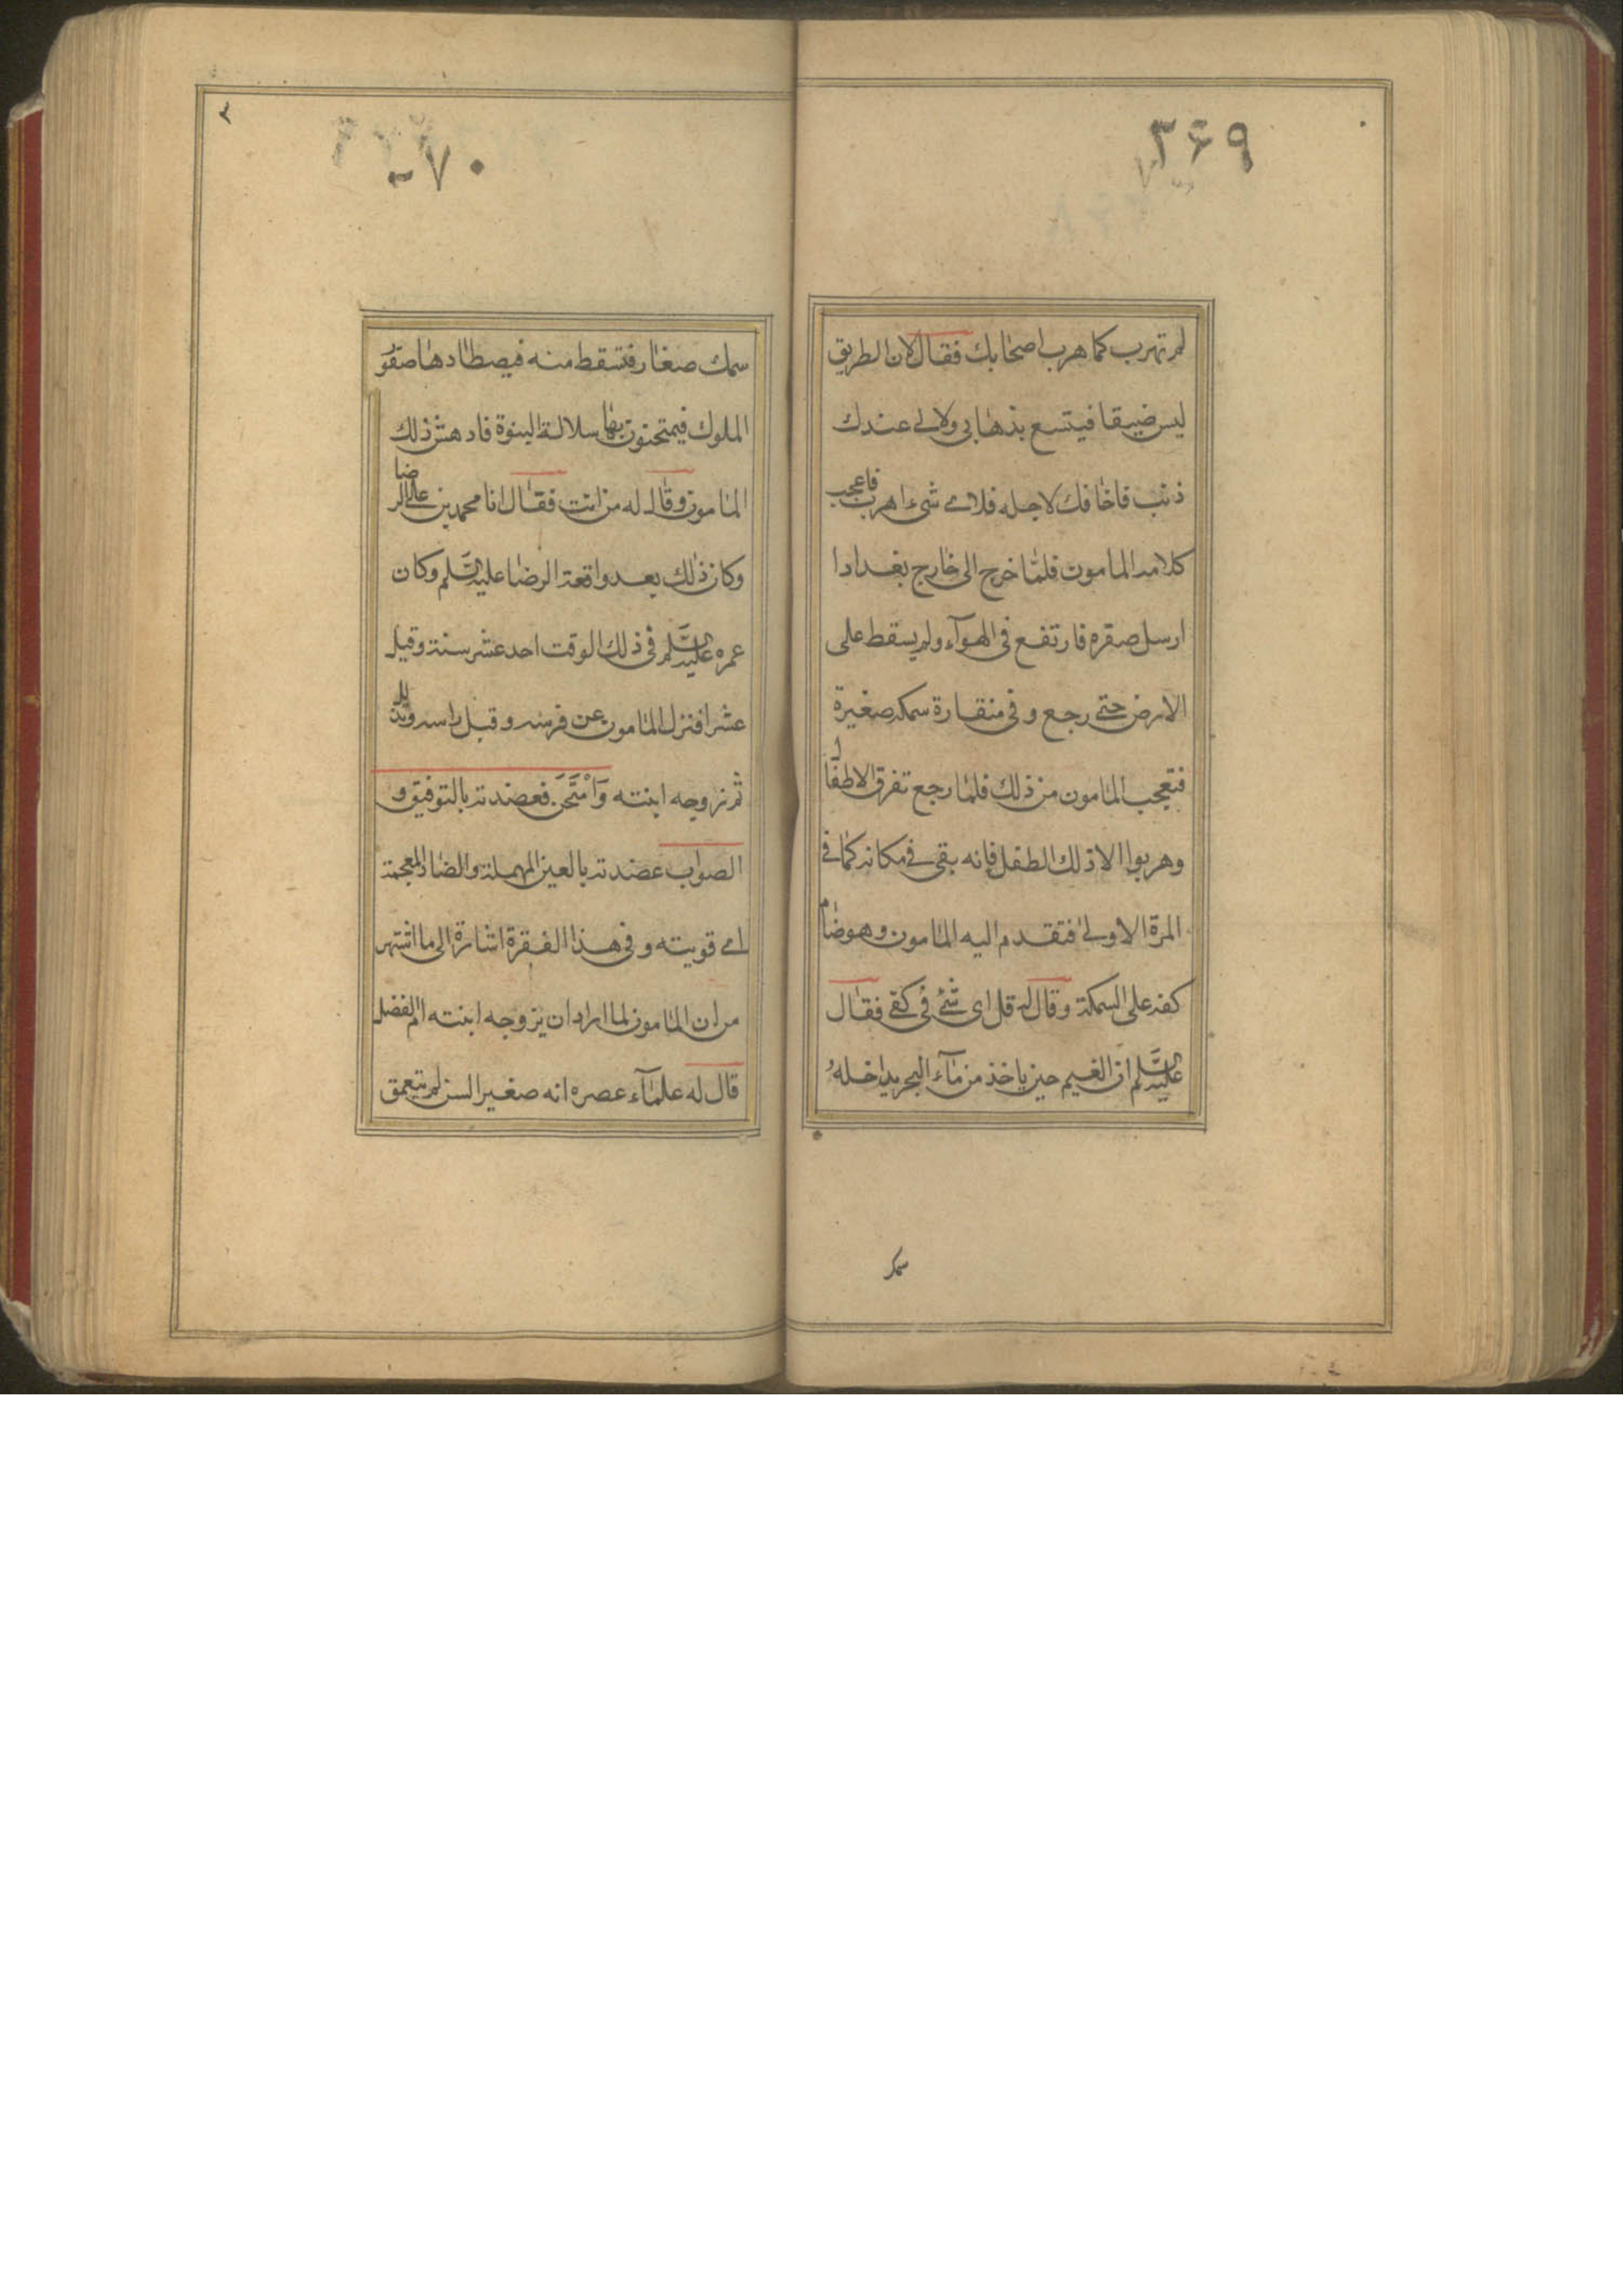 ۳۶۹
لم تهرب كما هرب اصحابك فقال لان الطريق
ليس ضيقا فيتسع بذهابي ولا لي عندك
ذنب فاخافك لاجله فلاي شيء اهرب فاعجب
كلامه المامون فلما خرج الى خارج بغداد ا
ارسل صقره فارتفع في الهوآء ولم يسقط على
الارض حتى رجع وفي منقارة سمكه صغيرة
فتعجب المامون من ذلك فلما رجع تفرق الاطفال
وهربوا الا ذلك الطفل فانه بقى في مكانه كما في
المرة الاولى فتقدم اليه المامون وهو ضام
كفه على السمكة وقال له قل اى شئ في كفى فقال
عليه السلم ان الغيم حين ياخذ من مآء البحر يداخله
سمك
۳۷۰
سمك صغار فتسقط منه فيصطادها صقور
الملوك فيمتحنون بها سلالة النبوة فادهش ذلك
المامون وقال له من انت فقال انا محمد بن على الرضا
وكان ذلك بعد واقعة الرضا عليه السلم وكان
عمره عليه السلم في ذلك الوقت احد عشر سنة وقيل
عشرا فنزل المامون عن فرسه وقبل راسه وتذلل
ثم زوجه ابنته وَامْتَحَنَ فعضدته بالتوفيق و
الصواب عضدته بالعين المهملة والضاد المعجمة
اي قويته وفي هذا الفقرة اشارة الى ما اشتهر
من ان المامون لما اراد ان يزوجه ابنته ام الفضل
قال له علمآء عصره انه صغير السن لم يتعمق